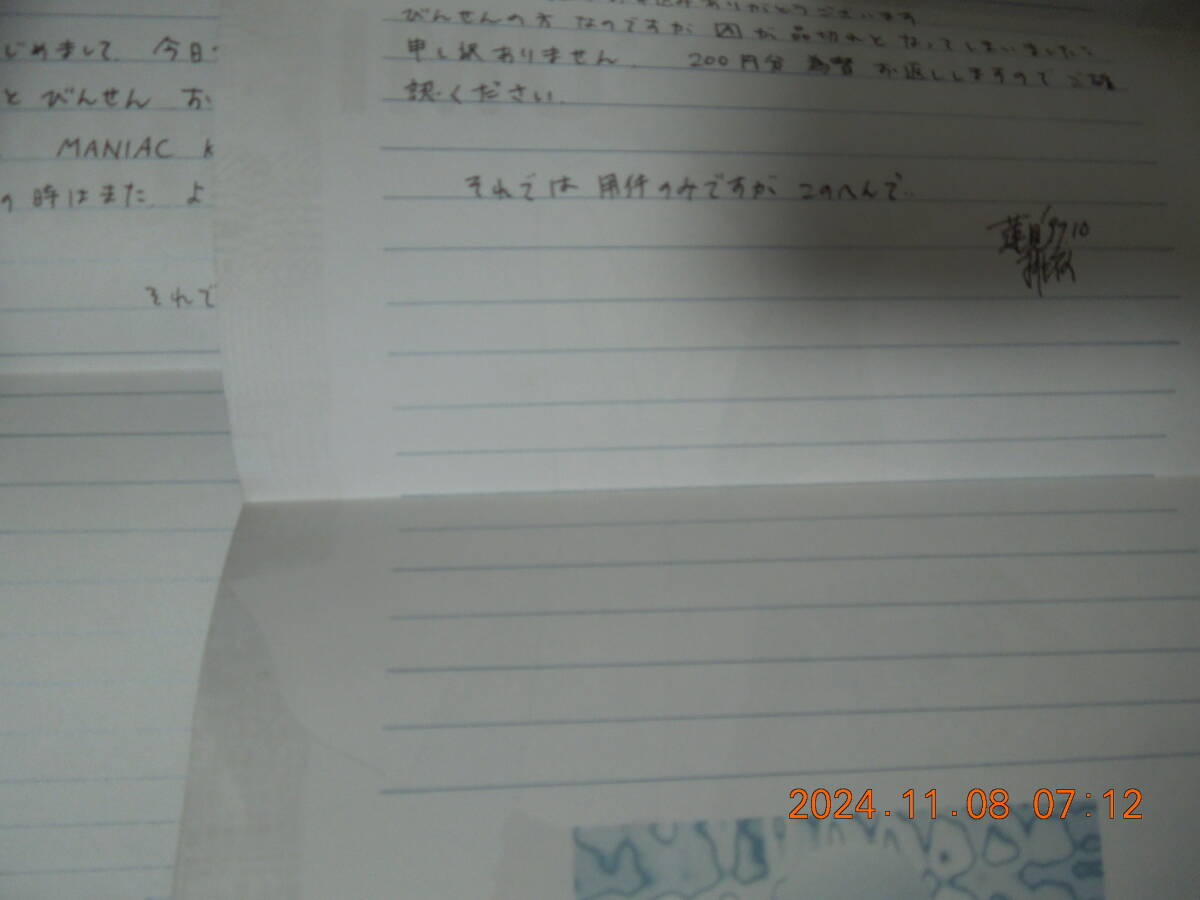 じめまして. 今日
と びんせん お
MANIAC K
の時はまた. よ
それで
込みありがとうございます
びんせんの方 なのですが 図 が 品切れと なってしまいました
申し訳ありません. 200円分 為替 お返ししますので ご確
認ください.
それでは 用件のみですが このへんで..
'97 10
2024.11.08 07:12